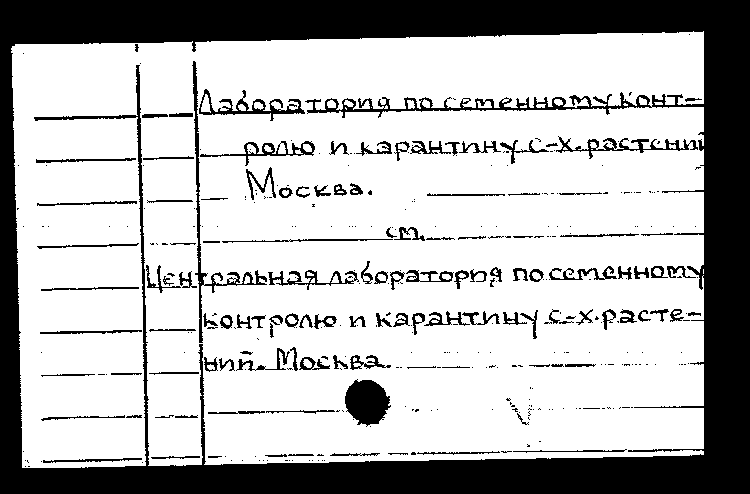 Лаборатория по семенному конт-
ролю и карантину с-х. растений
Москва.
см.
Центральная лаборатория по семенному
контролю и карантину с-х. расте-
ний. Москва.